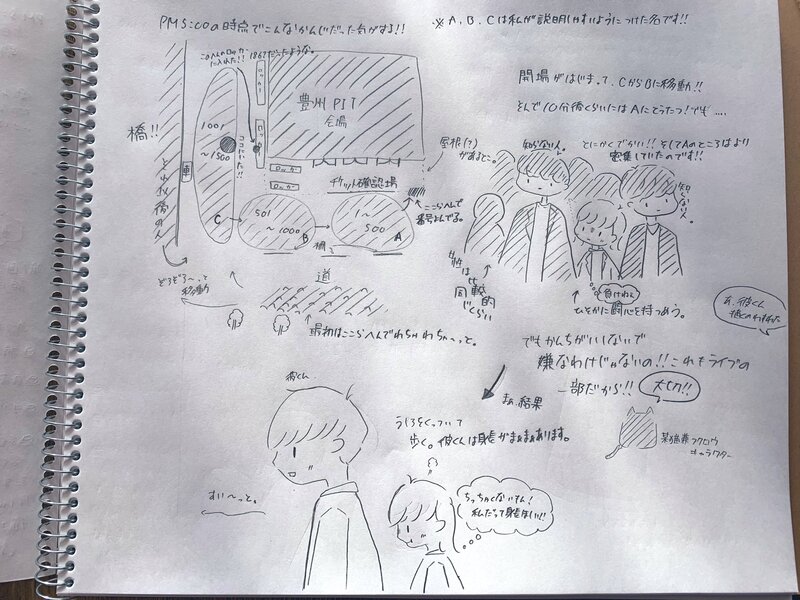 PM5:00の時点でこんなかんじだった気がする!!
※A、B、Cは私が説明しやすいようにつけた名です!!
このへんのロッカーに入れた!! 1867だったような。
開場がはじまって、CからBに移動!!
そんで10分後くらいにはAにとうたつ!でも....
橋!!
豊州PIT
会場
ロッカー
ロッカー
ロッカー
ココにいた!!
1001
〜1500
C
501
〜1000
B
1〜
500
A
チケット確認場
屋根(?)
があるとこ。
ここらへんで
番号よんでる。
柵
道
ぞろぞろ〜って
移動
最初はここらへんでわちゃわちゃ〜っと。
知らない人。
とにかくでかい!!そしてAのところはより
密集していたのです!!
知らない人。
女性は
比較的
同じくらい
負けねぇ
ひそかに闘心を持つあう。
でもかんちがいしないで
嫌なわけじゃないの!!これもライブの
一部だから!!
大切!!
まぁ、結果
うしろをくっついて
歩く。彼くんは身長がまぁまぁあります。
彼くん
すい〜っと。
ちっちゃくないもん!
私だって身長ほしい!!
某猫兼フクロウ
キャラクター